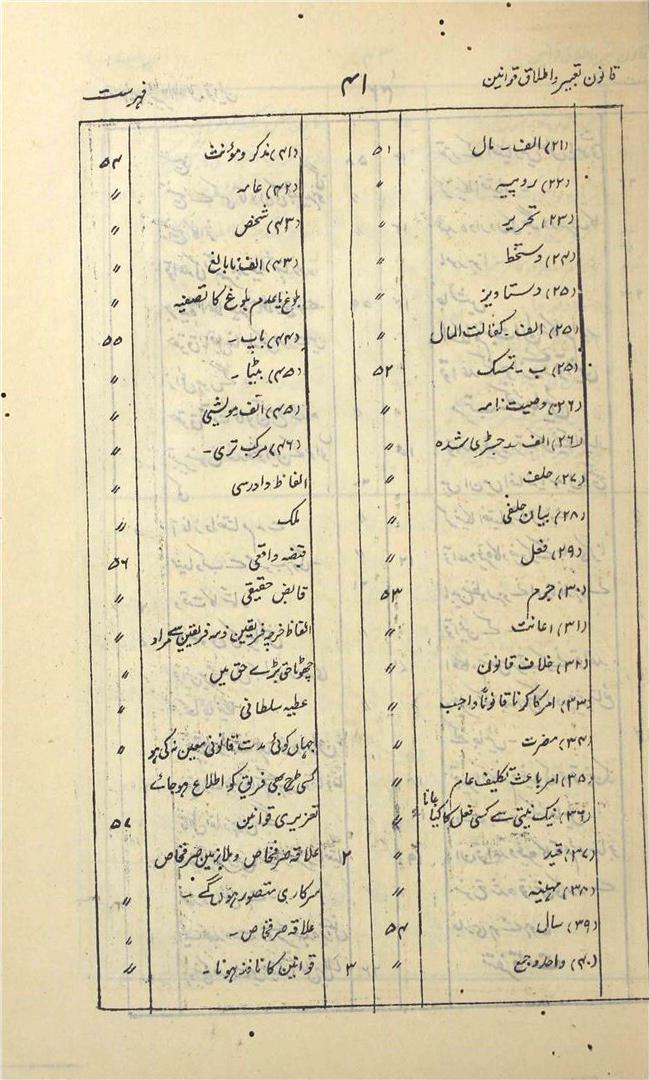 قانون تعبیر و اطلاق قوانین
۴۱
فہرست
(۲۱) الف - مال ۵۱
(۲۲) روپیہ 〃
(۲۳) تحریر 〃
(۲۴) دستخط 〃
(۲۵) دستاویز 〃
(۲۵) الف - کفالت المال 〃
(۲۵) ب - تمسک ۵۲
(۲۶) وصیت نامہ 〃
(۲۶) الف رجسٹری شدہ 〃
(۲۷) حلف 〃
(۲۸) بیان حلفی 〃
(۲۹) فعل 〃
(۳۰) جرم ۵۳
(۳۱) اعانت 〃
(۳۲) خلاف قانون 〃
(۳۳) امر کا کرنا قانوناً واجب 〃
(۳۴) مضرت 〃
(۳۵) امر باعث تکلیف عام 〃
(۳۶) نیک نیتی سے کسی فعل کا کیا جانا 〃
(۳۷) قید 〃
(۳۸) مہینہ 〃
(۳۹) سال ۵۴
(۴۰) واحد و جمع 〃
(۴۱) مذکر و مؤنث ۵۴
(۴۲) عامہ 〃
(۴۳) شخص 〃
(۴۳) الف نابالغ 〃
بلوغ یا عدم بلوغ کا تصفیہ 〃
(۴۴) باپ - ۵۵
(۴۵) بیٹا - 〃
(۴۵) الف مویشی 〃
(۴۶) مرکب تری - 〃
الفاظ دادرسی 〃
ملک 〃
قبضہ واقعی ۵۶
قابض حقیقی 〃
الفاظ خرچہ فریقین ذمہ فریقین سے مراد 〃
چھوٹا حق بڑے حق میں 〃
عطیہ سلطانی 〃
جہاں کوئی مدت قانونی معین نہ کی ہو 〃
کسی طرح بھی فریق کو اطلاع ہوجائے
تعزیری قوانین ۵۷
۲ علاقہ صرفخاص و ملازمین صرفخاص
سرکاری متصور ہوں گے - 〃
علاقہ صرفخاص - 〃
۳ قوانین کا نافذ ہونا - 〃